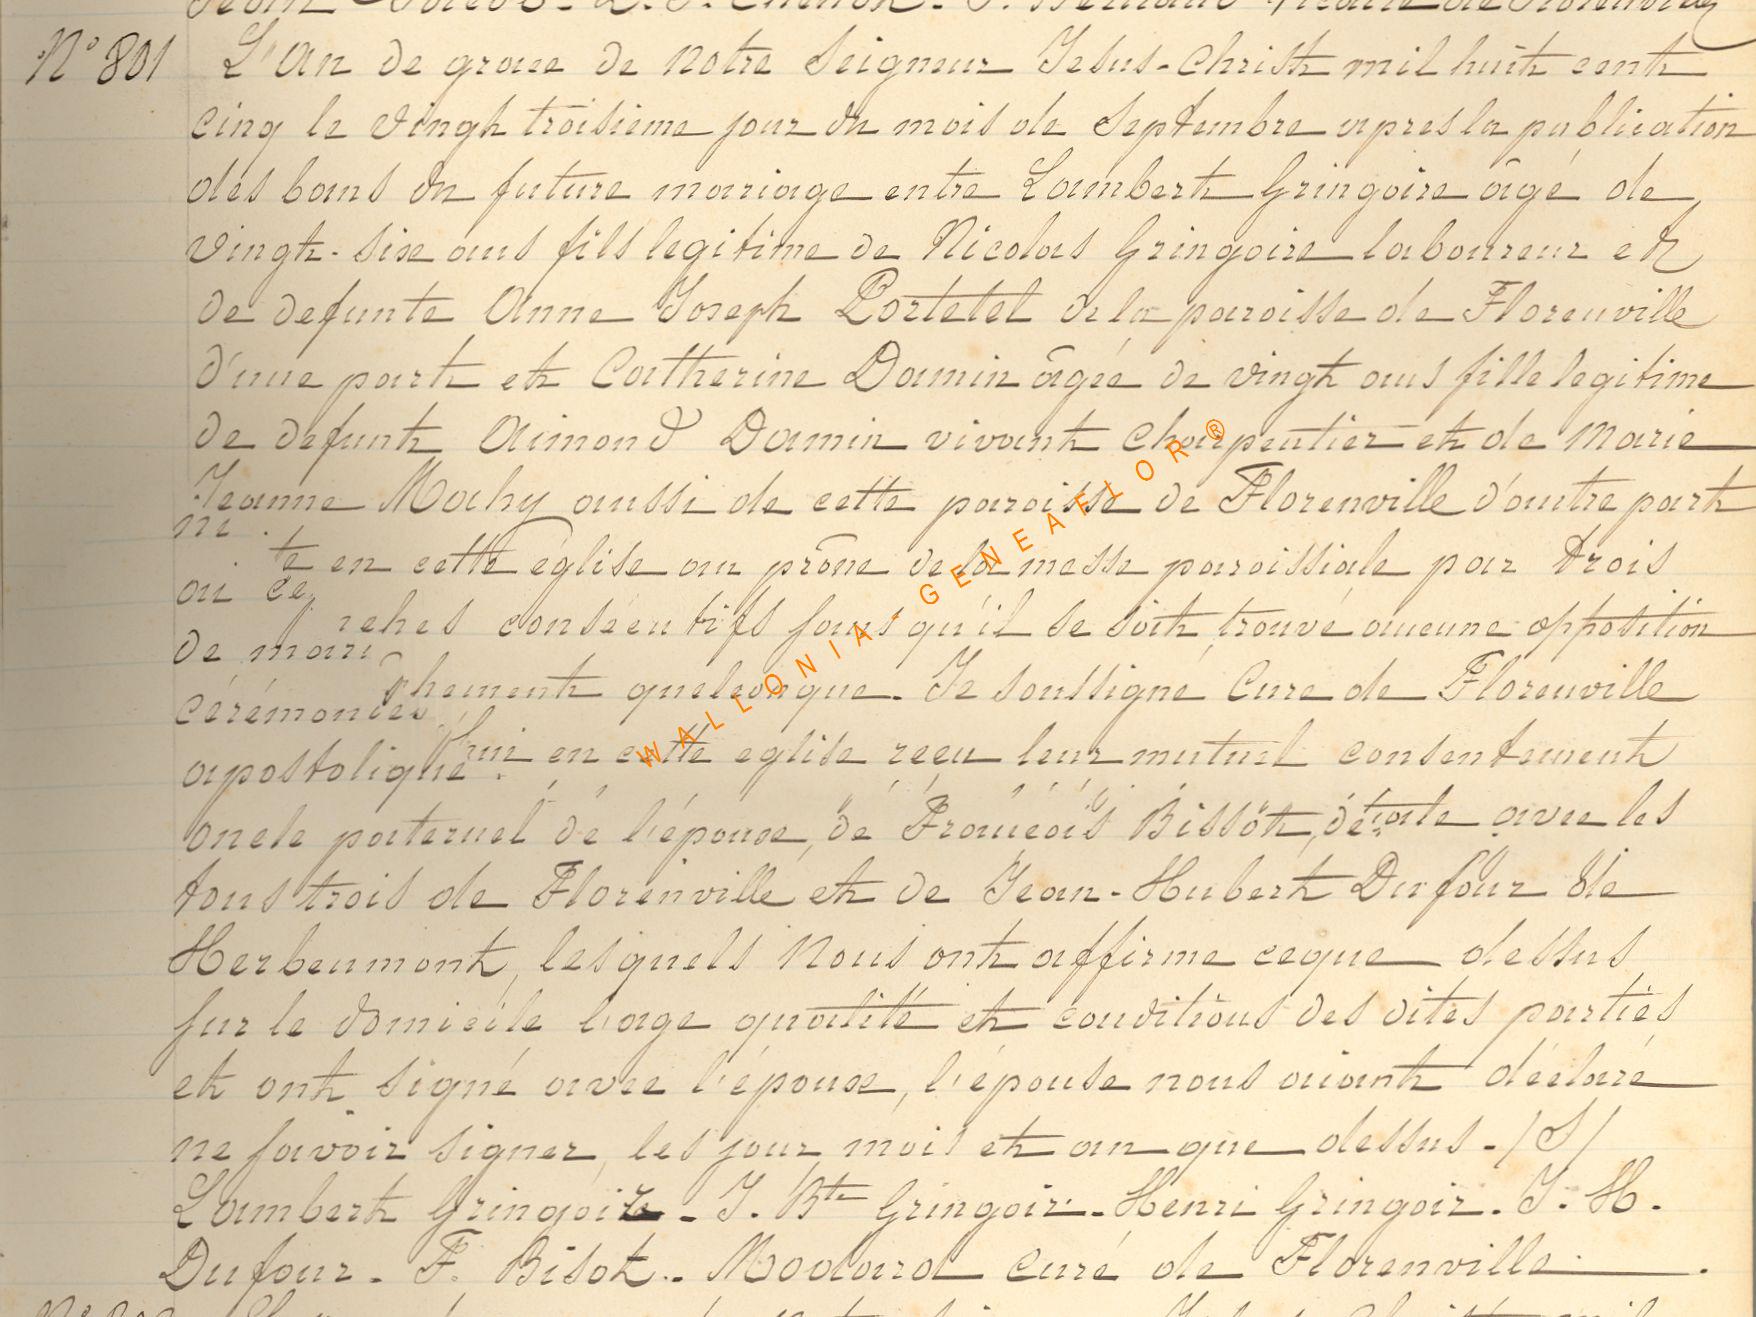 N° 801 L'An de grace de Notre Seigneur Jesus-Christ mil huit cent
cinq le vingt troisieme jour du mois de Septembre apres la publication
des bans du future mariage entre Lambert Gringoire âgé de
vingt-six ans fils legitime de Nicolas Gringoire laboureur et
de defunte Anne Joseph Portelet de la paroisse de Florenville
d'une part et Catherine Damin âgée de vingt ans fille legitime
de defunt Aimond Damin vivant charpentier et de Marie
Jeanne Mahy aussi de cette paroisse de Florenville d'autre part
te en cette église au prône de la messe paroissiale par trois
ai ce
ches consécutifs sans qu'il se soit trouvé aucune opposition
de mari
chement quelconque. Je soussigné Curé de Florenville
cérémonies
hui en cette eglise reçu leur mutuel consentement
apostolique
oncle paternel de l'épouse, de François Bissot, avec les
tous trois de Florenville et de Jean-Hubert Dufour de
Herbeumont, lesquels Nous ont affirme ceque dessus
sur le domicile l'age qualité et conditions des dites parties
et ont signé avec l'époux, l'épouse nous aiant déclaré
ne savoir signer, les jour mois et an que dessus - /S/
Lambert Gringoire - J. Bte Gringoir. - Henri Gringoir. J. H.
Dufour - F. Bisot. - Modard curé de Florenville.
WALLONIA-GENEAFLOR®